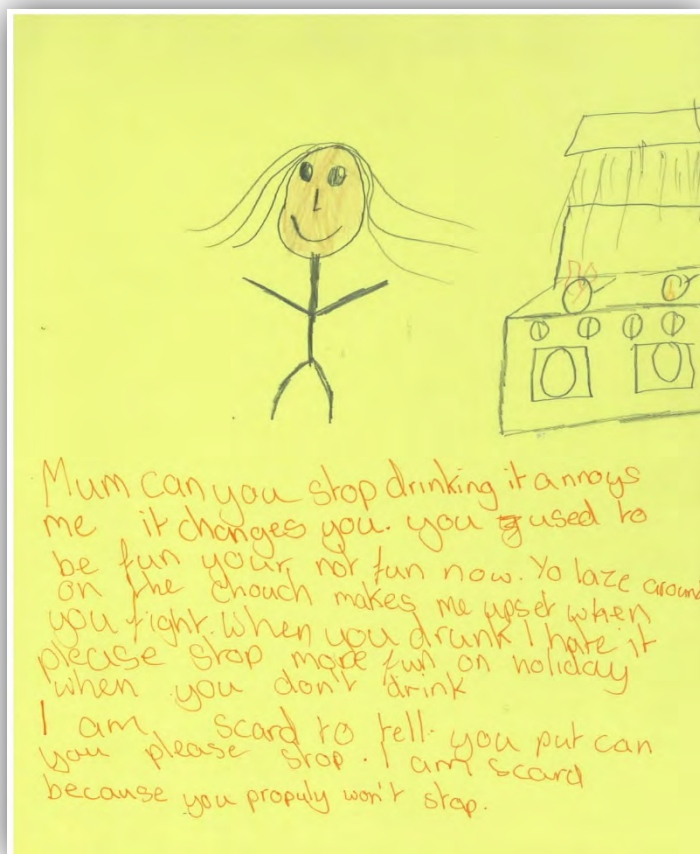 Mum can you stop drinking it annoys
me it changes you. you used to
be fun your not fun now. Yo laze around
on the chouch makes me upset when
you fight. When you drunk I hate it
please stop more fun on holiday
when you don't drink
I am scard to tell you put can
you please stop. I am scard
because you propuly won't stop.